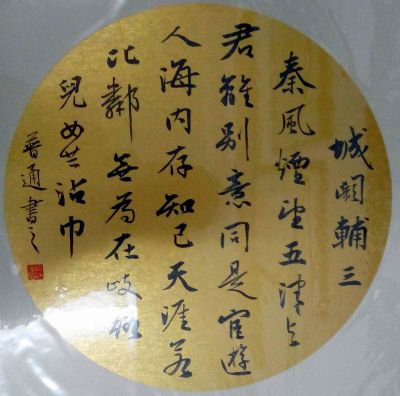 城闕輔三
秦風煙望五津与
君離别意同是宦遊
人海内存知己天涯若
比鄰無為在歧路
兒女共沾巾
普通書之